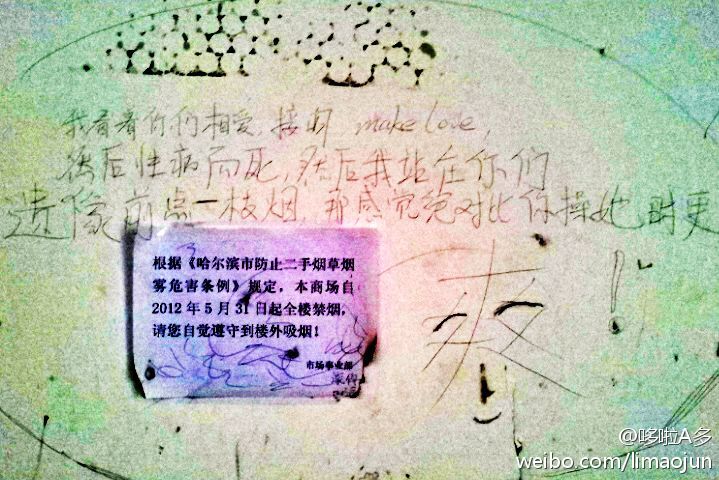 我看着你们相爱,接吻 make love,
然后性病而死,然后我站在你们
遗像前点一枝烟,那感觉绝对比你操她时更
爽!
根据《哈尔滨市防止二手烟草烟
雾危害条例》规定,本商场自
2012年5月31日起全楼禁烟,
请您自觉遵守到楼外吸烟!
市场事业部
@哆啦A多
weibo.com/limaojun